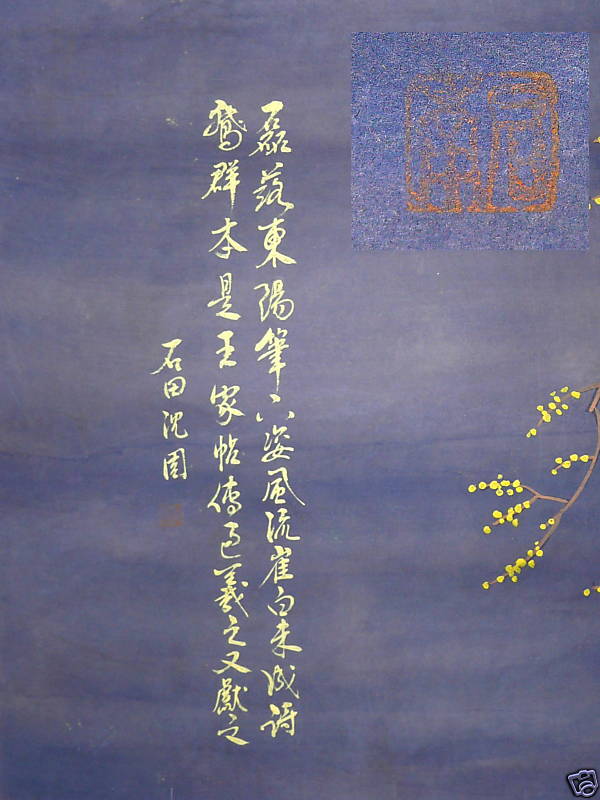 磊落東陽筆下姿風流崔白未成詩
鵞群本是王家帖傳過羲之又獻之
石田沈周